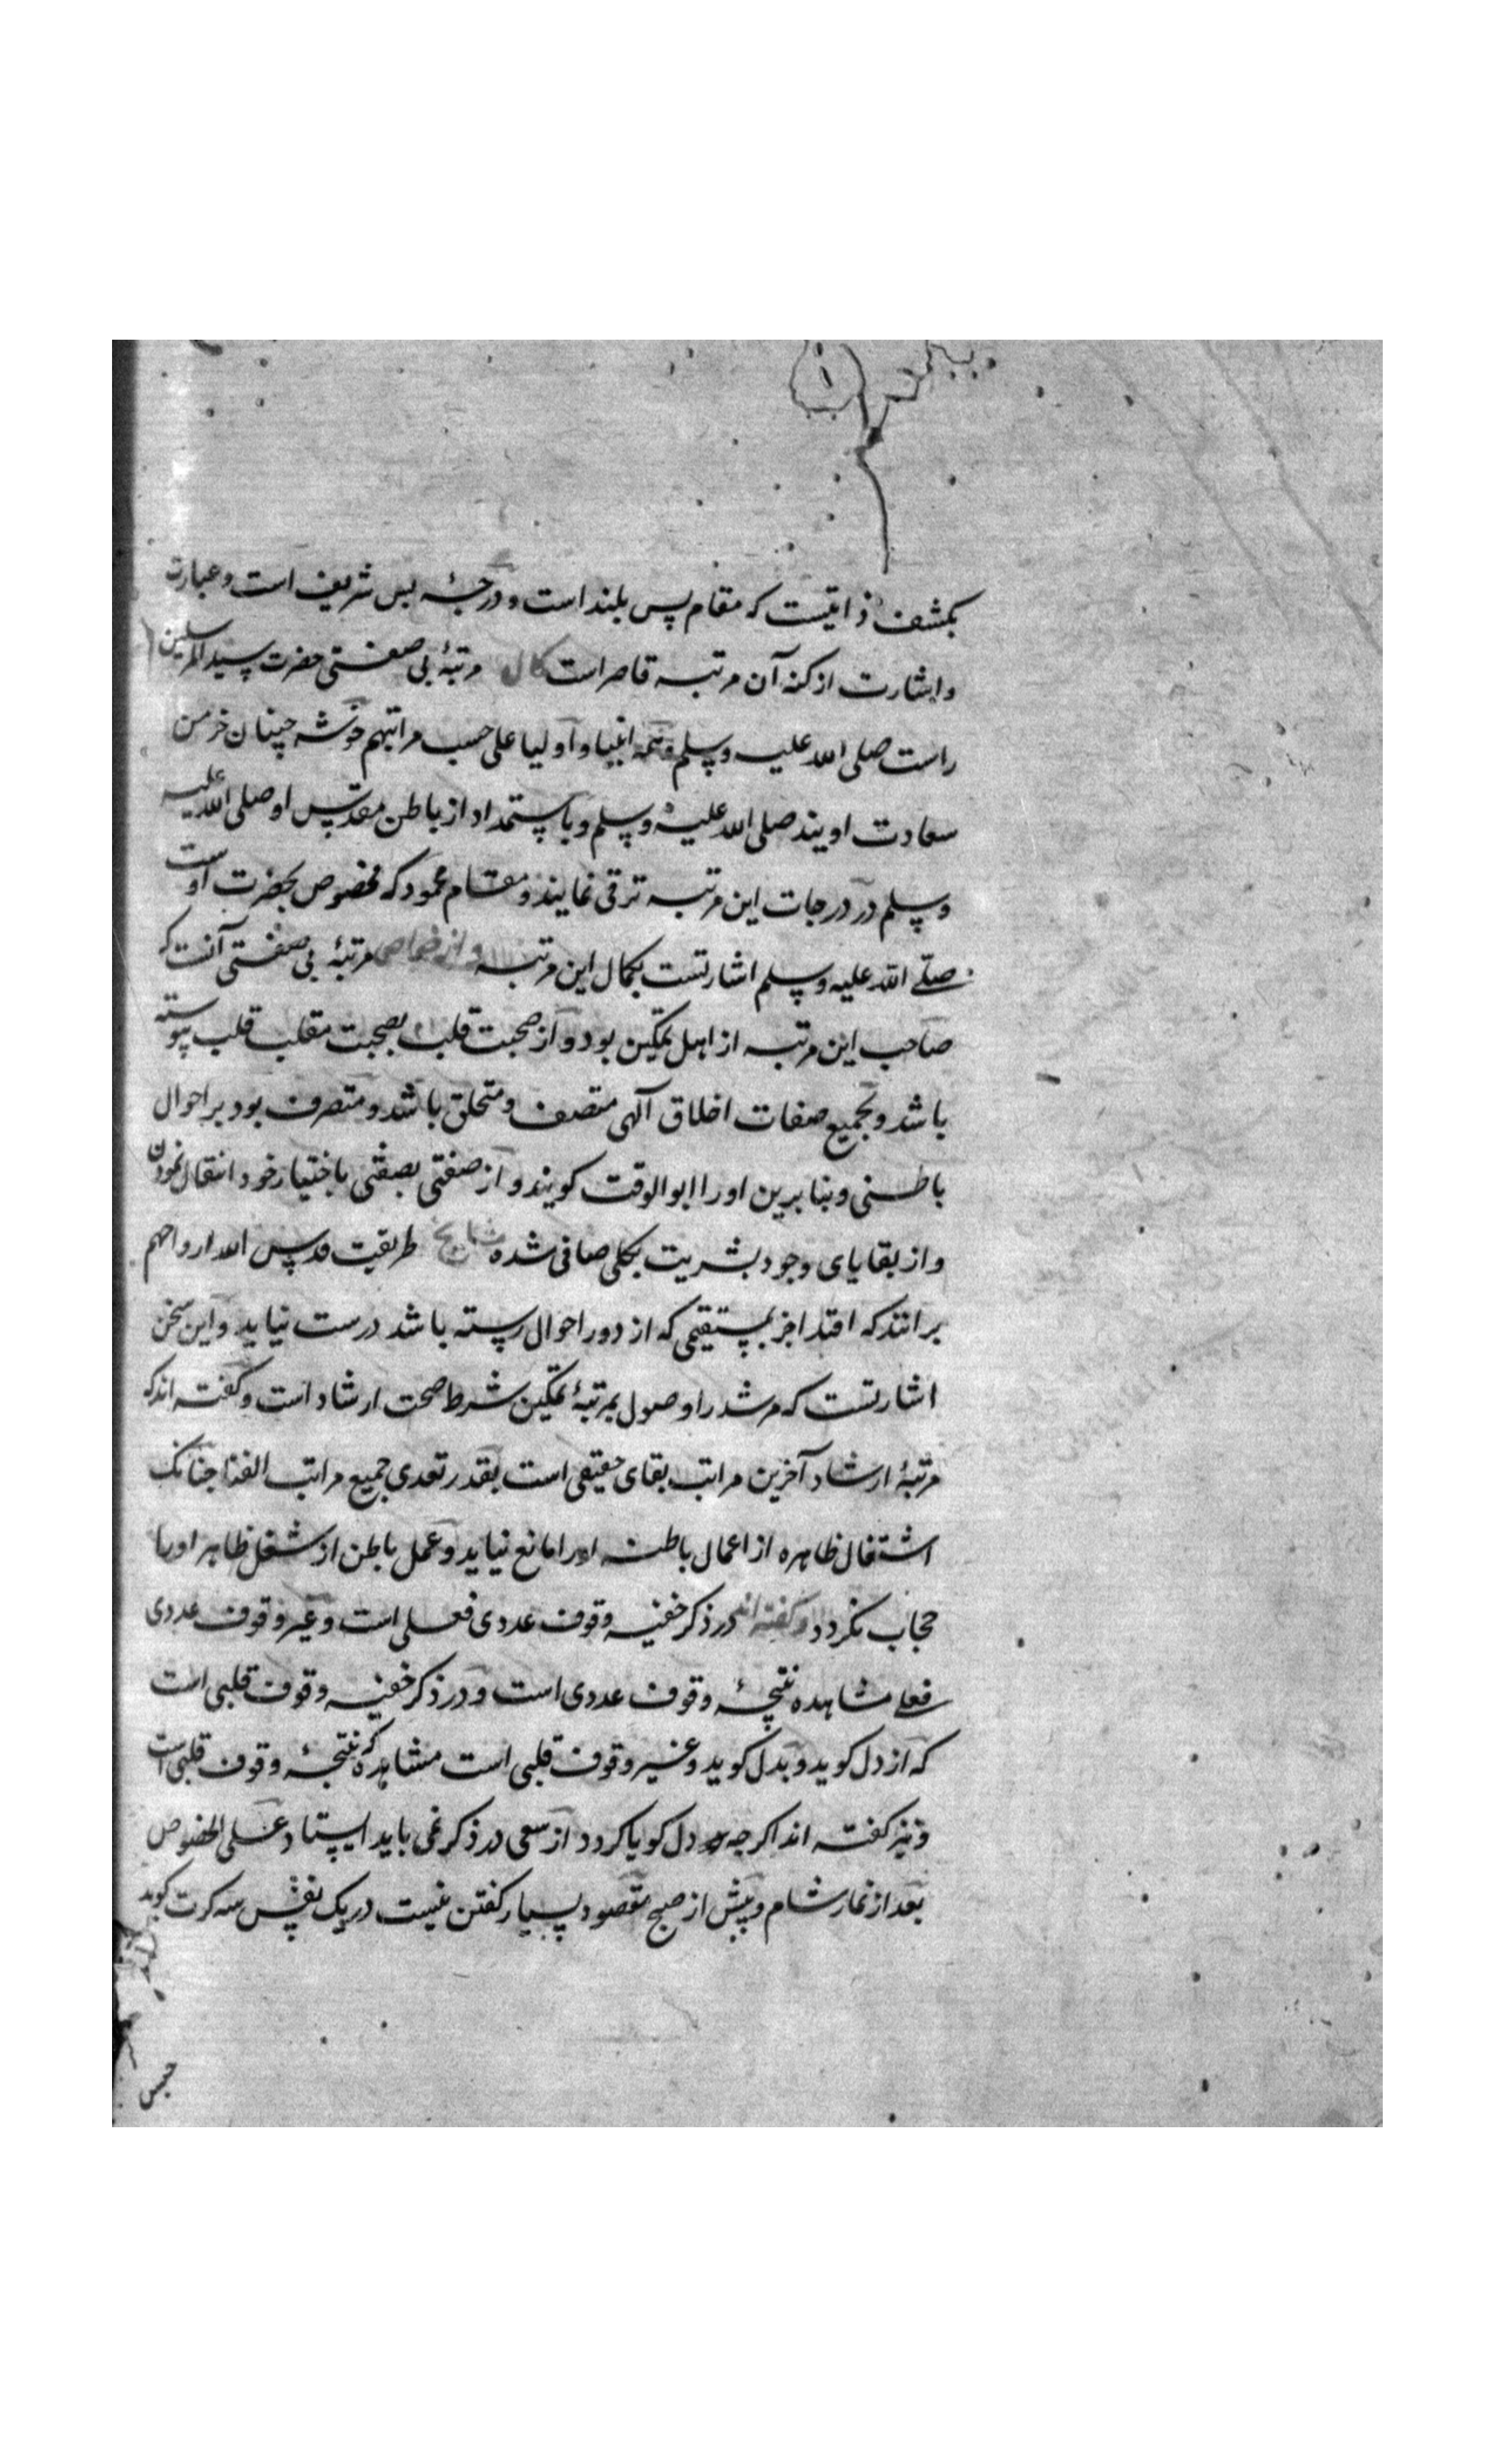 بکشف ذاتیست که مقام بس بلند است و درجهٔ بس شریف است و عبارت
و اشارت از کنه آن مرتبه قاصر است کمال مرتبهٔ بی صفتی حضرت سید المرسلین
راست صلی الله علیه وسلم و همه انبیا و اولیا علی حسب مراتبهم خوشه چینان خرمن
سعادت اویند صلی الله علیه وسلم و باستمداد از باطن مقدس او صلی الله علیه
وسلم در درجات این مرتبه ترقی نمایند و مقام محمود که مخصوص بحضرت اوست
صلی الله علیه وسلم اشارتست بکمال این مرتبه و از خواص مرتبهٔ بی صفتی آنست که
صاحب این مرتبه از اهل تمکین بود و از صحبت قلب بصحبت مقلب قلب پیوسته
باشد و بجمیع صفات اخلاق آلهی متصف و متخلق باشد و متصرف بود بر احوال
باطنی و بنا برین او را ابوالوقت کویند و از صفتی بصفتی باختیار خود انتقال نمودن
و از بقایای وجود بشریت بکلی صافی شده مشایخ طریقت قدس الله ارواحهم
برانند که اقتدا جز بمستقیمی که از دور احوال رسته باشد درست نیاید و این سخن
اشارتست که مرشد را وصول بمرتبهٔ تمکین شرط صحت ارشاد است و کفته اند که
مرتبهٔ ارشاد آخرین مراتب بقای حقیقی است بقدر تعدی جمیع مراتب الفنا چنانک
اشتغال ظاهره از اعمال باطنه او را مانع نیاید و عمل باطن از شغل ظاهر او را
حجاب نکردد و کفته اند در ذکر خفیه وقوف عددی فعلی است و غیر وقوف عددی
فعلی مشاهده نتیجهٔ وقوف عددی است و در ذکر خفیه وقوف قلبی است
که از دل کوید و بدل کوید و غیر وقوف قلبی است مشاهده که نتیجهٔ وقوف قلبی است
و نیز کفته اند اکرچه دل کویا کردد از سعی در ذکر نمی باید ایستاد علی الخصوص
بعد از نماز شام و پیش از صبح مقصود بسیار کفتن نیست در یک نفس سه کرت کوید
حبس